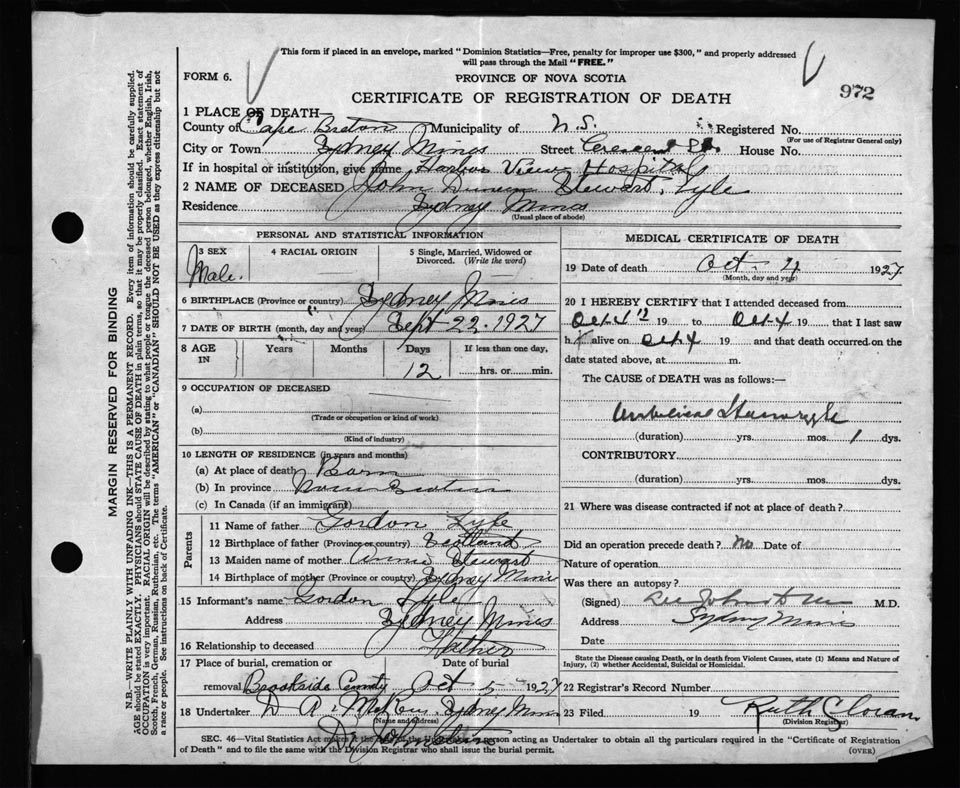 This form if placed in an envelope, marked "Dominion Statistics—Free, penalty for improper use $300," and properly addressed
will pass through the Mail "FREE."
FORM 6.
PROVINCE OF NOVA SCOTIA
972
CERTIFICATE OF REGISTRATION OF DEATH
1 PLACE OF DEATH
County of Cape Breton Municipality of N.S. Registered No.
(For use of Registrar General only)
City or Town Sydney Mines Street Crescent St. House No.
If in hospital or institution, give name Harbor View Hospital
2 NAME OF DECEASED John Duncan Stewart Lyle
Residence Sydney Mines
(Usual place of abode)
PERSONAL AND STATISTICAL INFORMATION
3 SEX
Male.
4 RACIAL ORIGIN
5 Single, Married, Widowed or
Divorced. (Write the word)
6 BIRTHPLACE (Province or country) Sydney Mines
7 DATE OF BIRTH (month, day and year) Sept 22 - 1927
8 AGE IN
Years Months Days
12
If less than one day,
hrs. or min.
9 OCCUPATION OF DECEASED
(a)
(Trade or occupation or kind of work)
(b)
(Kind of industry)
10 LENGTH OF RESIDENCE (in years and months)
(a) At place of death Born
(b) In province Nova Scotia
(c) In Canada (if an immigrant)
Parents
11 Name of father Gordon Lyle
12 Birthplace of father (Province or country) Scotland
13 Maiden name of mother Annie Stewart
14 Birthplace of mother (Province or country) Sydney Mines
15 Informant's name Gordon Lyle
Address Sydney Mines
16 Relationship to deceased Father
17 Place of burial, cremation or Date of burial
removal Brookside County Oct 5 1927
18 Undertaker D A Sydney Mines
(Name and address)
MEDICAL CERTIFICATE OF DEATH
19 Date of death Oct 4 1927
(Month, day and year)
20 I HEREBY CERTIFY that I attended deceased from
Oct 4 19 to Oct 4 19 that I last saw
h alive on Oct 4 19 and that death occurred on the
date stated above, at m.
The CAUSE of DEATH was as follows:—
Umbilical Hemorrhage
(duration) yrs. mos. 1 dys.
CONTRIBUTORY
(duration) yrs. mos. dys.
21 Where was disease contracted if not at place of death?
Did an operation precede death? No Date of
Nature of operation
Was there an autopsy?
(Signed) Johnstone M.D.
Address Sydney Mines
Date
State the Disease causing Death, or in death from Violent Causes, state (1) Means and Nature of
Injury, (2) whether Accidental, Suicidal or Homicidal.
22 Registrar's Record Number
23 Filed 19 Ruth Sloan
(Division Registrar)
SEC. 46—Vital Statistics Act makes it the duty of the person acting as Undertaker to obtain all the particulars required in the "Certificate of Registration
of Death" and to file the same with the Division Registrar who shall issue the burial permit.
(OVER)
MARGIN RESERVED FOR BINDING
N.B.—WRITE PLAINLY WITH UNFADING INK—THIS IS A PERMANENT RECORD. Every item of information should be carefully supplied.
AGE should be stated EXACTLY. PHYSICIANS should STATE CAUSE OF DEATH in plain terms, so that it may be properly classified. Exact statement of
OCCUPATION is very important. RACIAL ORIGIN will be described by stating to what people or tongue the deceased person belonged, whether English, Irish,
Scotch, French, German, Russian, Ruthenian, etc. The terms "AMERICAN" or "CANADIAN" SHOULD NOT BE USED as they express citizenship but not
a race or people. See instructions on back of Certificate.